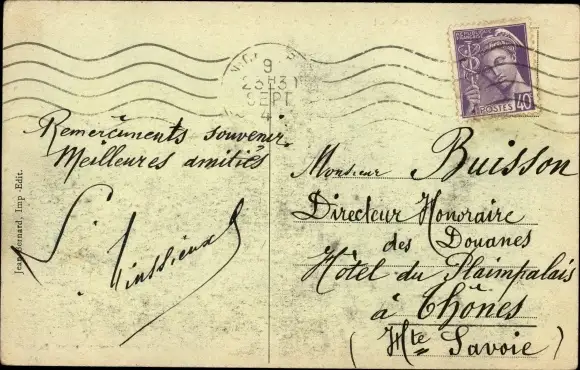 9
23H30
SEPT
POSTES 40
Remerciments souvenir
Meilleures amitiés
Monsieur Buisson
Directeur Honoraire
des Douanes
Hôtel du Plaimpalais
à Thônes
(Hte Savoie)
Jean Bernard, Imp.-Edit.